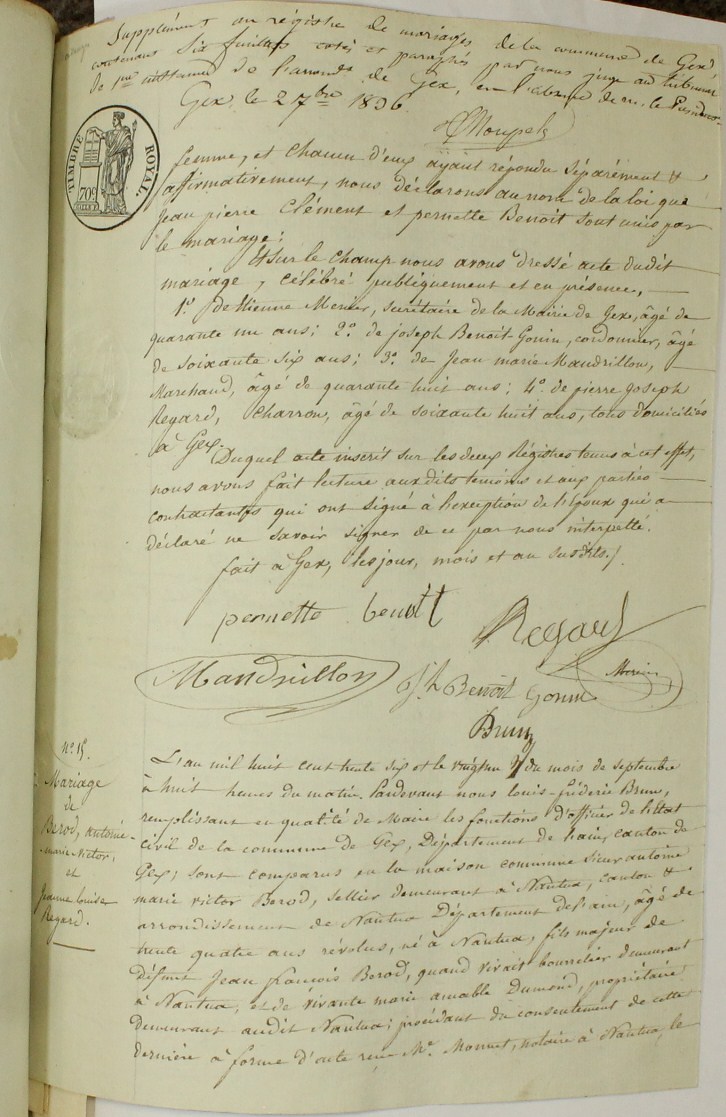 Supplément au régistre de mariages de la commune de Gex,
contenant six feuillets cotés et paraphés par nous juge au tribunal
de 1ere instance de l'arrondt de Gex, en l'absence de m. le Président
Gex, le 2 7bre 1836
TIMBRE ROYAL.
70c
femme, et chacun d'eux ayant répondu séparément et
affirmativement, nous déclarons au nom de la loi que
Jean pierre Clément et pernette Benoit sont unis par
le mariage:
Et sur le champ nous avons dressé acte dudit
mariage, célébré publiquement et en présence,
1º. d'Etienne Mercier, secrétaire de la Mairie de Gex, âgé de
quarante un ans; 2º. de joseph Benoit-Gonin, cordonnier, âgé
de soixante six ans; 3º. de Jean marie Mandrillon,
Marchand, âgé de quarante huit ans; 4º. de pierre joseph
Regard, charron, âgé de soixante huit ans, tous domiciliés
à Gex.
Duquel acte inscrit sur les deux Régistres tenus à cet effet,
nous avons fait lecture auxdits temoins et aux parties
contractantes qui ont signé à l'exception de l'époux qui a
déclaré ne savoir signer de ce par nous interpellé.
fait à Gex, les jour, mois et an susdits./.
pernette benoit
Regard
Mandrillon
Jh Benoit Gonin
Mercier
Brun
nº. 15.
Mariage
de
Berod, antoine-
marie-Victor,
et
Jeanne Louise
Regard.
L'an mil huit cent trente six et le vingt un du mois de septembre
à huit heures du matin. Pardevant nous Louis-fréderic Brun,
remplissant en qualité de Maire les fonctions d'officier de l'état
civil de la commune de Gex, Département de l'ain, canton de
Gex; sont comparus en la maison commune sieur antoine
marie victor Berod, sellier demeurant à Nantua, canton et
arrondissement de Nantua Département de l'ain, âgé de
trente quatre ans révolus, né à Nantua, fils majeur de
défunt Jean françois Berod, quand vivait bourrelier demeurant
à Nantua, et de vivante marie amable Dumond, propriétaire
demeurant audit Nantua; procédant du consentement de cette
dernière à forme d'acte reçu Me. Monnet, notaire à Nantua, le